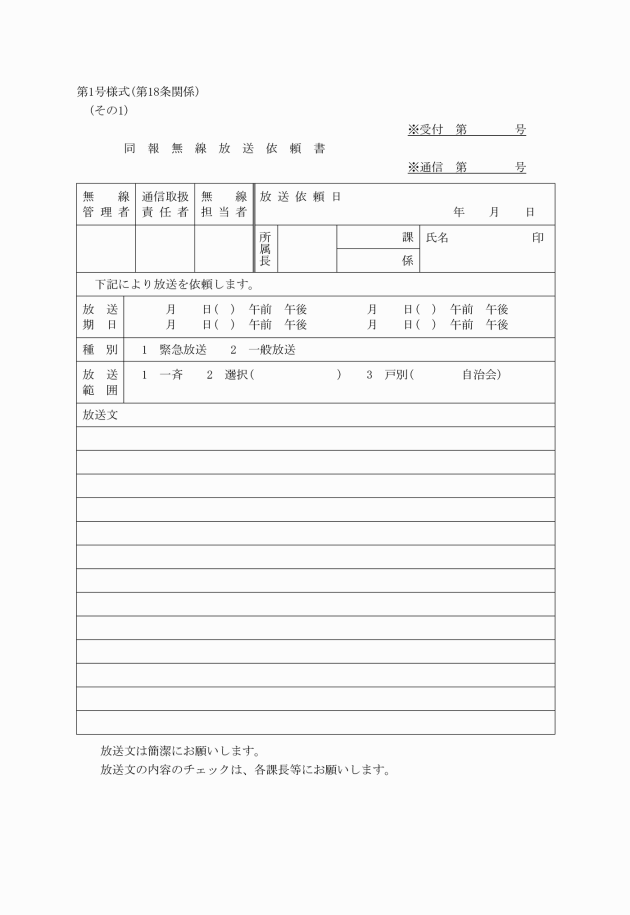 第1号様式(第18条関係)
(その1)
※受付　第　　　　号
同 報 無 線 放 送 依 頼 書
※通信　第　　　　号
無　　線　通信取扱　無　　線　放 送 依 頼 日
管 理 者　責 任 者　担 当 者　年　　月　　日
所属長　課　氏名　印
係
下記により放送を依頼します。
放　送　月　　日(　)　午前　午後　月　　日(　)　午前　午後
期　日　月　　日(　)　午前　午後　月　　日(　)　午前　午後
種　別　1　緊急放送　　2　一般放送
放　送　1　一斉　　2　選択(　　　　　　　)　　3　戸別(　　　　自治会)
範　囲
放送文
放送文は簡潔にお願いします。
放送文の内容のチェックは、各課長等にお願いします。